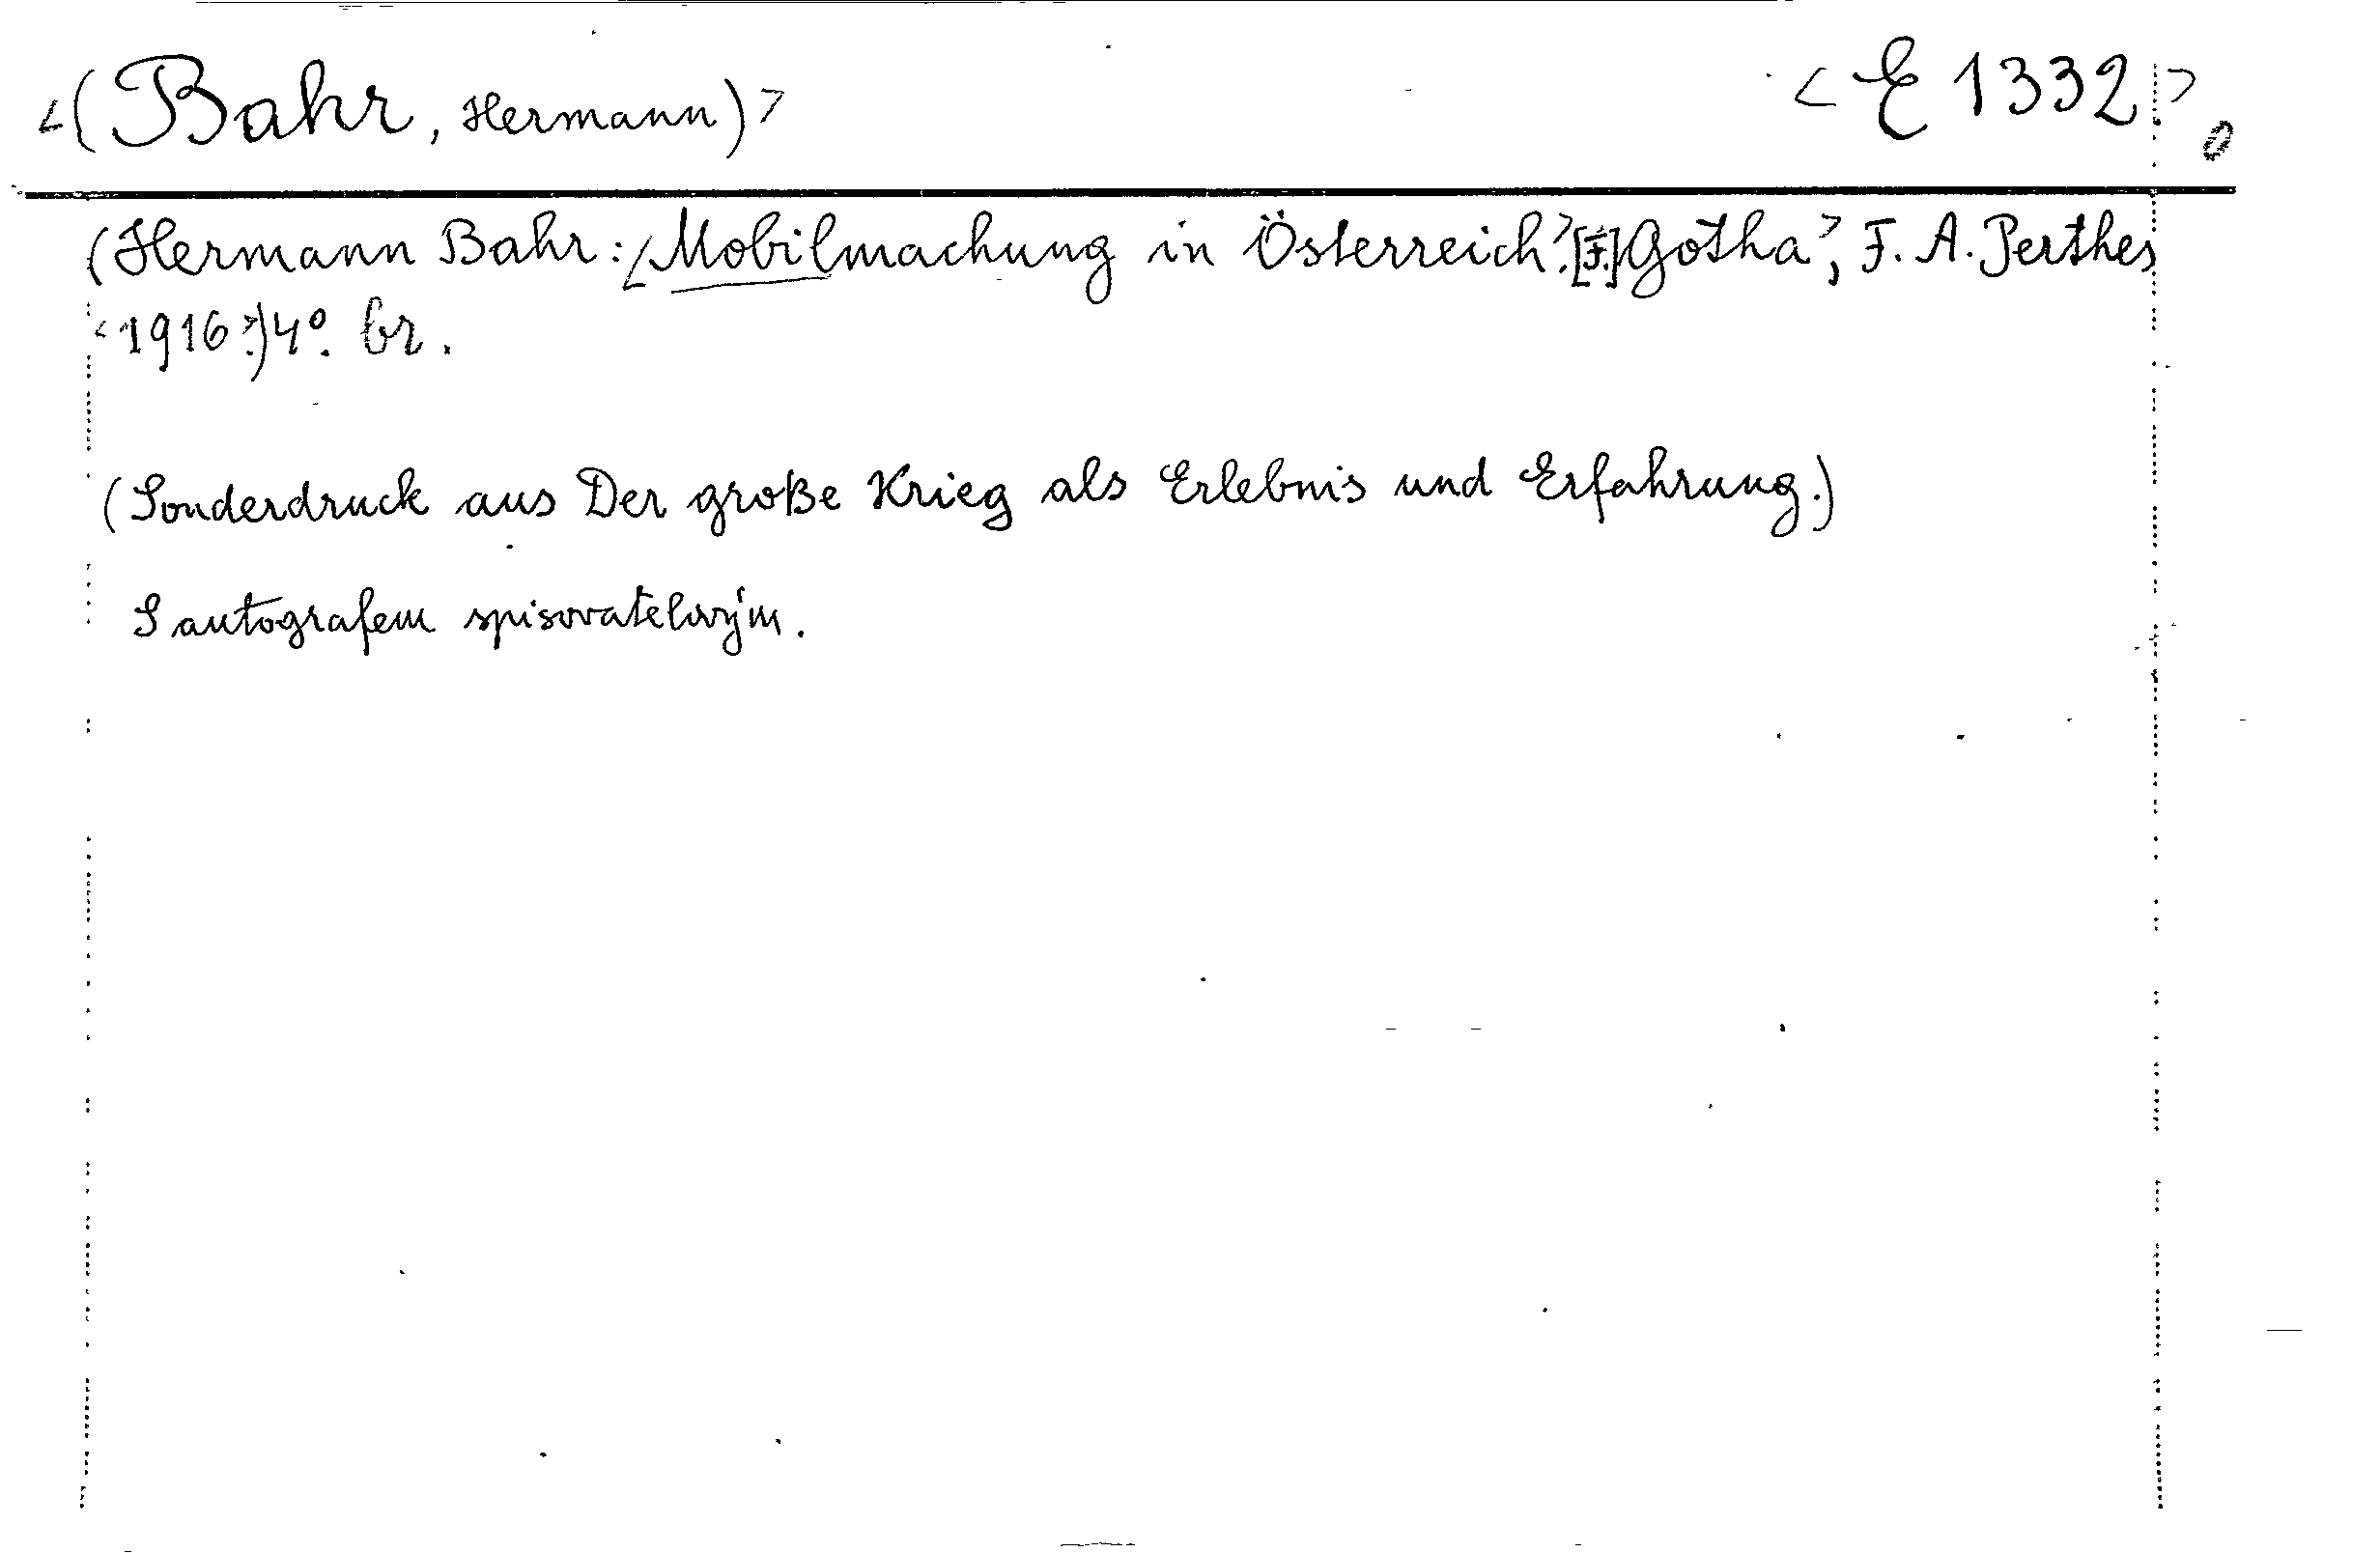 <(Bahr, Hermann)> <E 1332.> 0
(Hermann Bahr: <Mobilmachung in Österreich>. [F.] Gotha>, F. A. Perthes
<1916>.) 4°. br.
(Sonderdruck aus Der große Krieg als Erlebnis und Erfahrung.)
S autografem spisovatelovým.